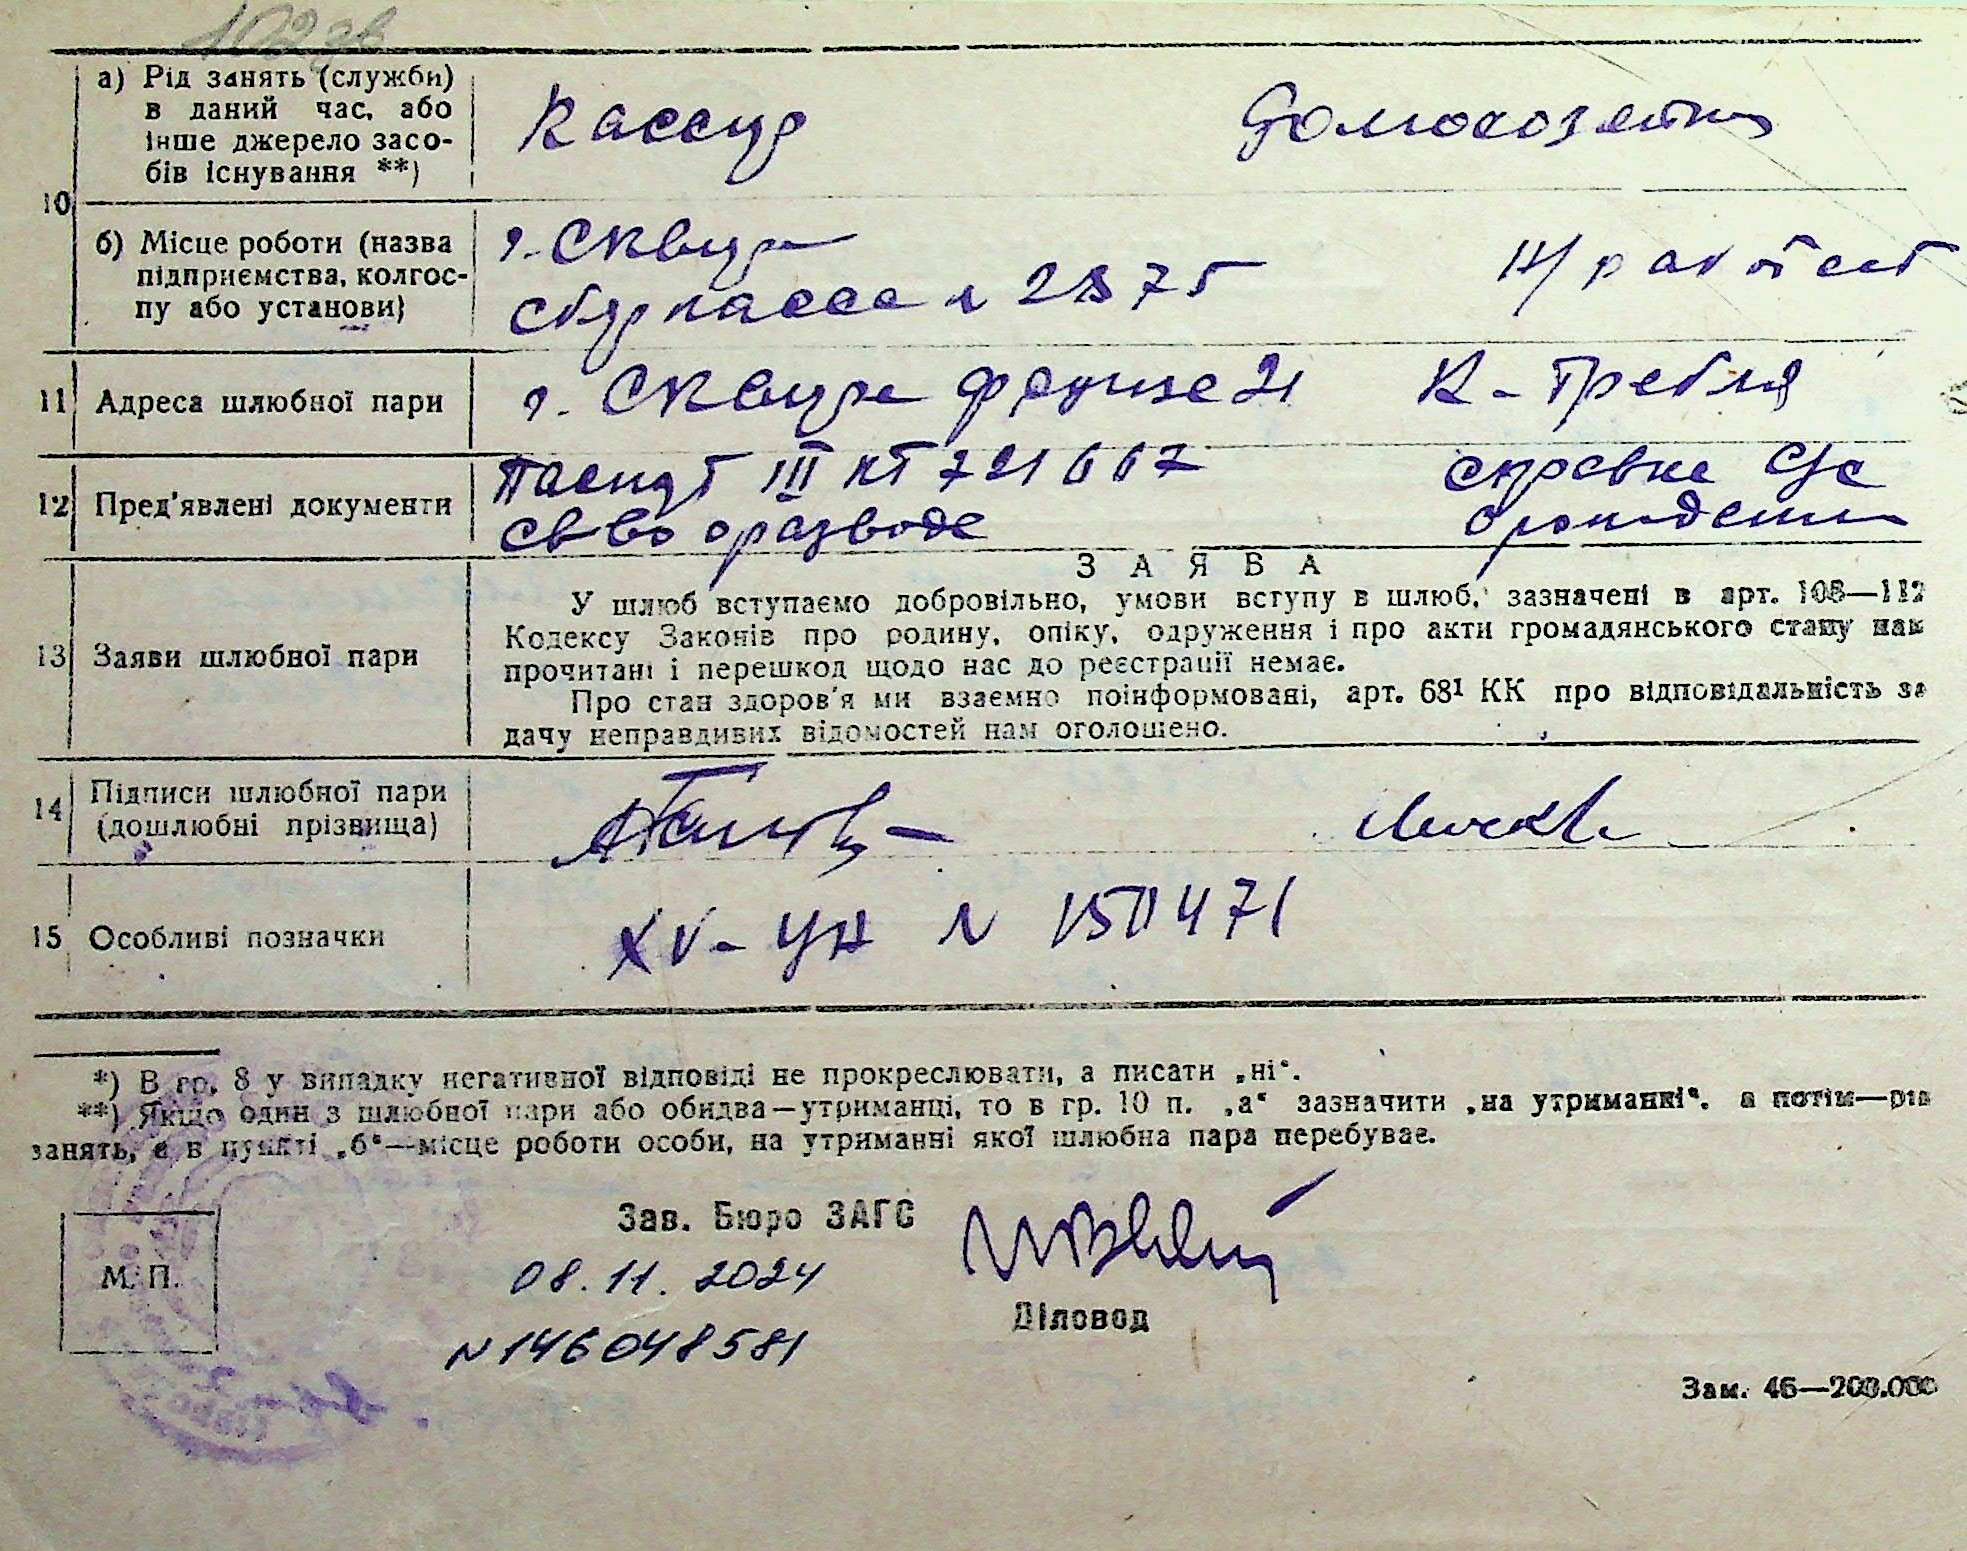 а) Рід занять (служби)
в даний час, або
інше джерело засо-
бів існування **)
Кассир
Домохозяйка
10
б) Місце роботи (назва
підприємства, колгос-
пу або установи)
г. Сквира
сберкасса № 2875
н/работает
11 Адреса шлюбної пари
г. Сквира Фрунзе 21
К-Гребля
12 Пред'явлені документи
Паспорт III КТ 721667
св-во о разводе
справка с/с
о рождении
13 Заяви шлюбної пари
ЗАЯВА
У шлюб вступаємо добровільно, умови вступу в шлюб, зазначені в арт. 108—112
Кодексу Законів про родину, опіку, одруження і про акти громадянського стану нам
прочитані і перешкод щодо нас до реєстрації немає.
Про стан здоров'я ми взаємно поінформовані, арт. 68¹ КК про відповідальність за
дачу неправдивих відомостей нам оголошено.
14 Підписи шлюбної пари
(дошлюбні прізвища)
15 Особливі позначки
XV-УН № 150471
*) В гр. 8 у випадку негативної відповіді не прокреслювати, а писати „ні“.
**) Якщо один з шлюбної пари або обидва—утриманці, то в гр. 10 п. „а“ зазначити „на утриманні“, а потім—рід
занять, а в пункті „б“—місце роботи особи, на утриманні якої шлюбна пара перебуває.
М. П.
Зав. Бюро ЗАГС
08.11.2024
Діловод
N146048581
Зам. 46—200.000